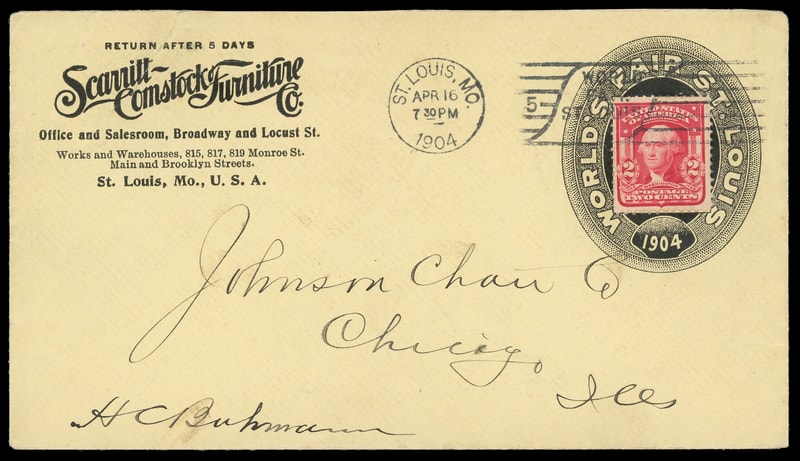 RETURN AFTER 5 DAYS
Scarritt-
Comstock Furniture
Co.
Office and Salesroom, Broadway and Locust St.
Works and Warehouses, 815, 817, 819 Monroe St.
Main and Brooklyn Streets.
St. Louis, Mo., U. S. A.
ST. LOUIS, MO.
APR 16
7 30 PM
1904
5
WORLD'S FAIR ST. LOUIS
1904
UNITED STATES
OF AMERICA
2 2
POSTAGE
TWO CENTS
Johnson Chair Co
Chicago,
Ills
H C Buhmann